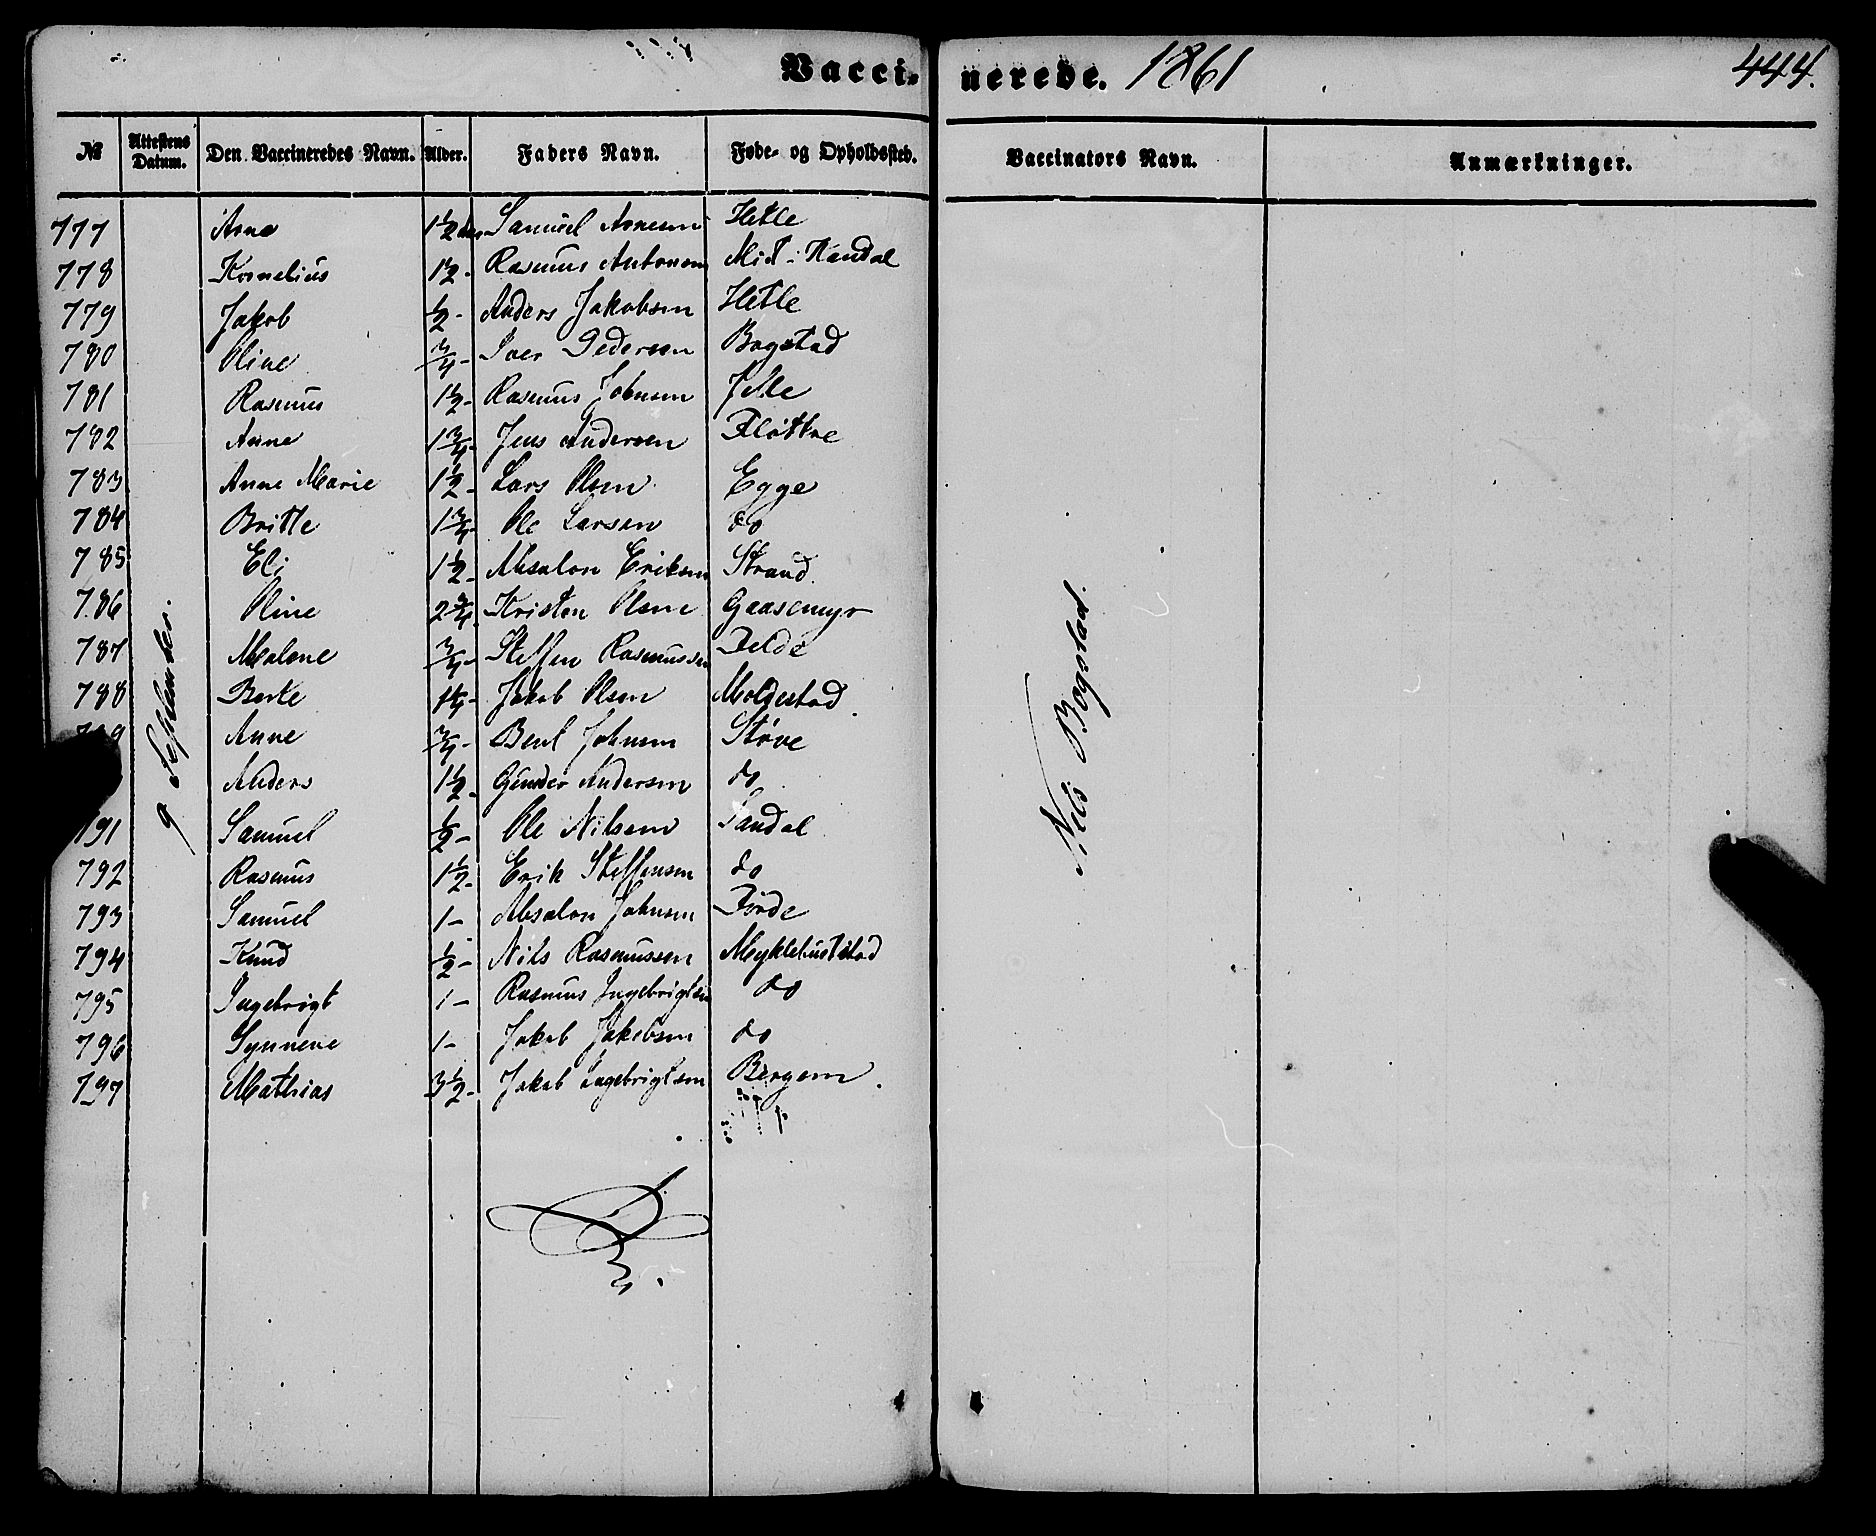 Vaccinerede. 1861 444.
No Attestens Datum. Den Vaccineredes Navn. Alder. Faders Navn. Føde- og Opholdssted. Vaccinators Navn. Anmærkninger.
9 September.
Nils Bogstad.
777 Arne 1½ Samuel Arnesen Hetle
778 Kornelius 1½- Rasmus Antonsen Mid i Handal
779 Jakob ½- Anders Jakobsen Hetle
780 Oline ¾- Iver Pedersen Bogstad
781 Rasmus 1½- Rasmus Johnsen
782 Anne 1¾- Jens Andersen Fløttre
783 Anne Marie 1½- Lars Olsen Egge
784 Britte 1¾- Ole Larsen do
785 Eli 1½- Absalon Eriksen Strand
786 Oline 2¾- Kristen Olsen Gaasemyr
787 Malene ¾- Steffen Rasmussen Felde
788 Berte 1¼- Jakob Olsen Moldestad
9 Anne ¾- Bent Johnsen Støve
Anders 1½- Gunder Andersen do
791 Samuel ½- Ole Nilsen Sandal
792 Rasmus 1½- Erik Steffensen do
793 Samuel 1- Absalon Johnsen Förde
794 Knud ½- Nils Rasmussen Myklebuststad
795 Ingebrigt 1- Rasmus Ingebrigtsen do
796 Synneve 1- Jakob Jakobsen do
797 Mathias 3½- Jakob Ingebrigtsen Bergem.